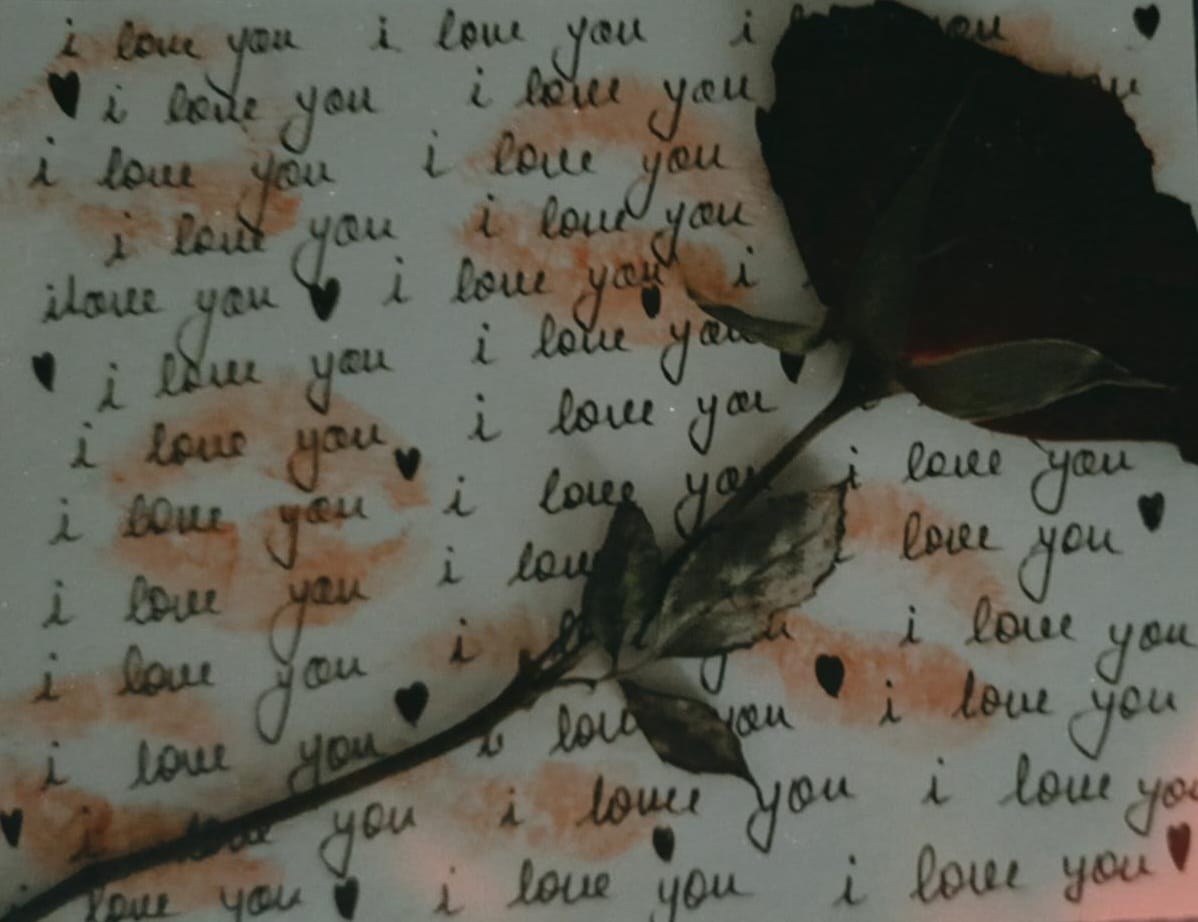 i love you i love you i you
i love you i love you
i love you i love you
i love you i love you
ilove you i love you i
i love you i love you
i love you i love you
i love you i love you i love you
i love you i love you
i love you i i love you
i love you i love you i love you
i love you i love you i love you
i love you i love you i love you